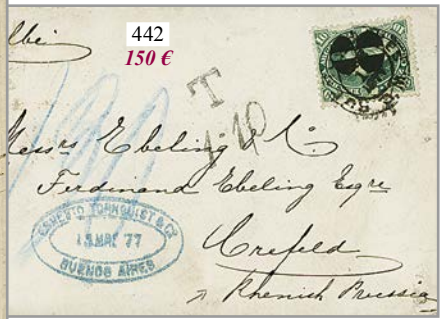 442
150 €
T
Messrs Ebeling & Co.
Ferdinand Ebeling Esqre
Crefeld
Rhenish Prussia
ERNESTO TORNQUIST & Ca
15 MAR 77
BUENOS AIRES
10